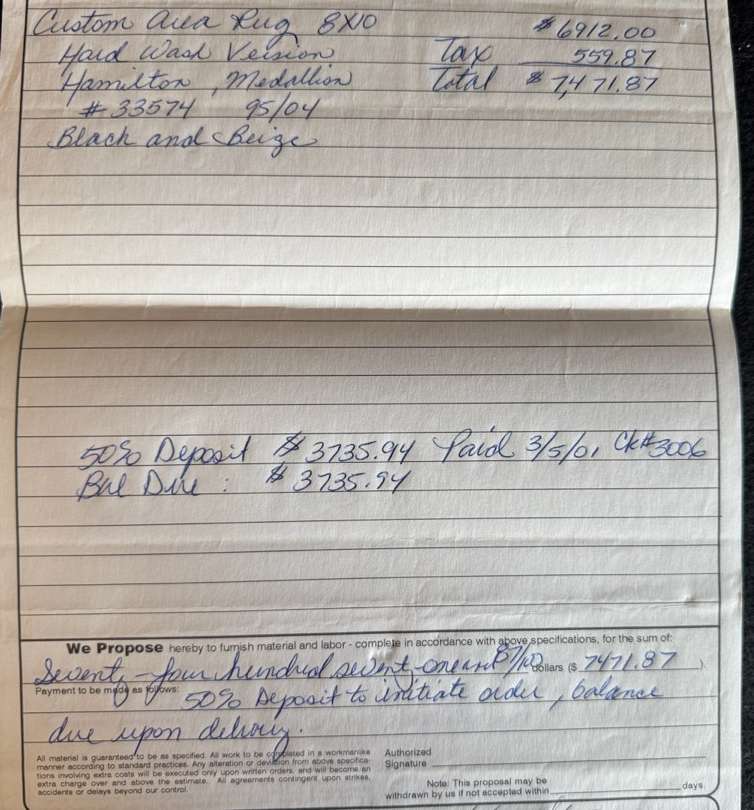 Custom Area Rug 8X10 $6912.00
Hard Wash Version Tax 559.87
Hamilton, Medallion Total $7,471.87
#33574 95/04
Black and Beige
50% Deposit $3735.94 Paid 3/5/01, Ck#3006
Bal Due: $3735.94
We Propose hereby to furnish material and labor - complete in accordance with above specifications, for the sum of:
Seventy-four hundred sevent-one and 87/100 dollars ($ 7471.87 ).
Payment to be made as follows: 50% Deposit to initiate order, balance
due upon delivery.
All material is guaranteed to be as specified. All work to be completed in a workmanlike
manner according to standard practices. Any alteration or deviation from above specifica-
tions involving extra costs will be executed only upon written orders, and will become an
extra charge over and above the estimate. All agreements contingent upon strikes,
accidents or delays beyond our control.
Authorized
Signature
Note: This proposal may be
withdrawn by us if not accepted within days.